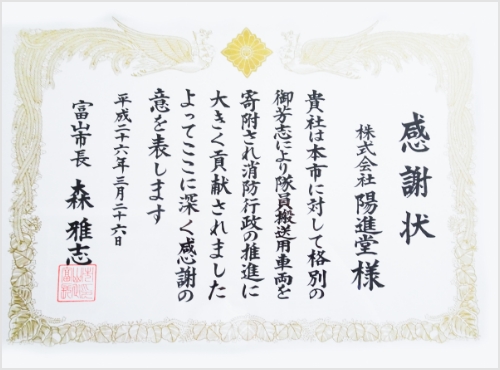 感謝状
株式会社 陽進堂 様
貴社は本市に対して格別の
御芳志により隊員搬送用車両を
寄附され消防行政の推進に
大きく貢献されました
よってここに深く感謝の
意を表します
平成二十六年三月二十六日
富山市長 森雅志